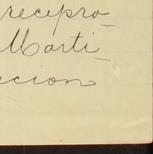 recipro
Marti
acion